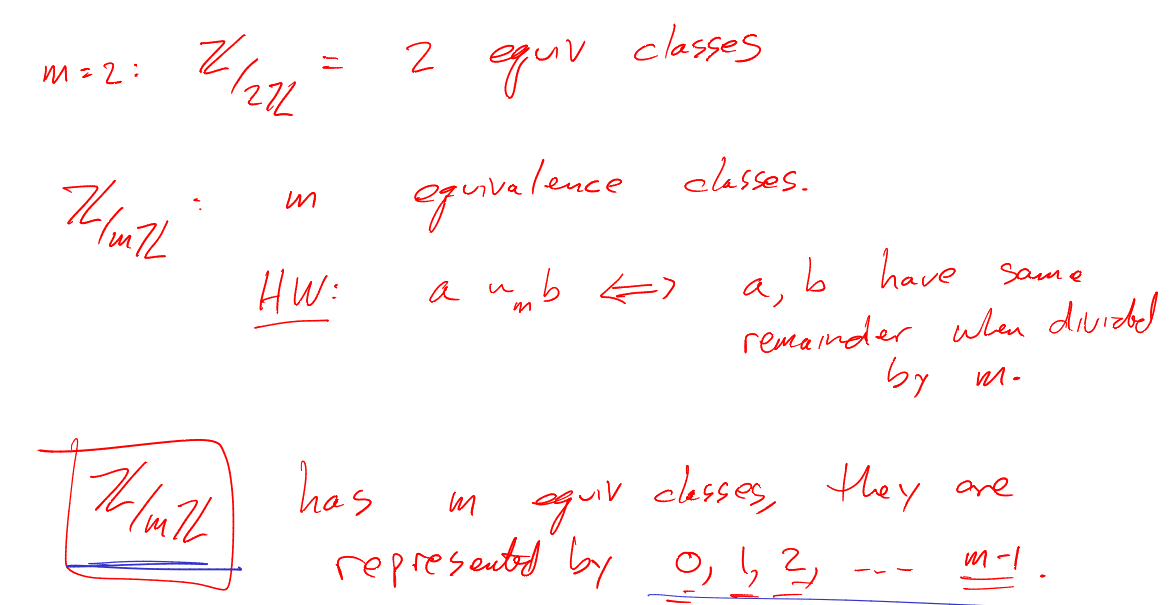 m=2: ℤ/2ℤ = 2 equiv classes
ℤ/mℤ : m equivalence classes.
HW: a ~m b ⟺ a, b have same
remainder when divided
by m.
ℤ/mℤ has m equiv classes, they are
represented by 0, 1, 2, --- m-1.